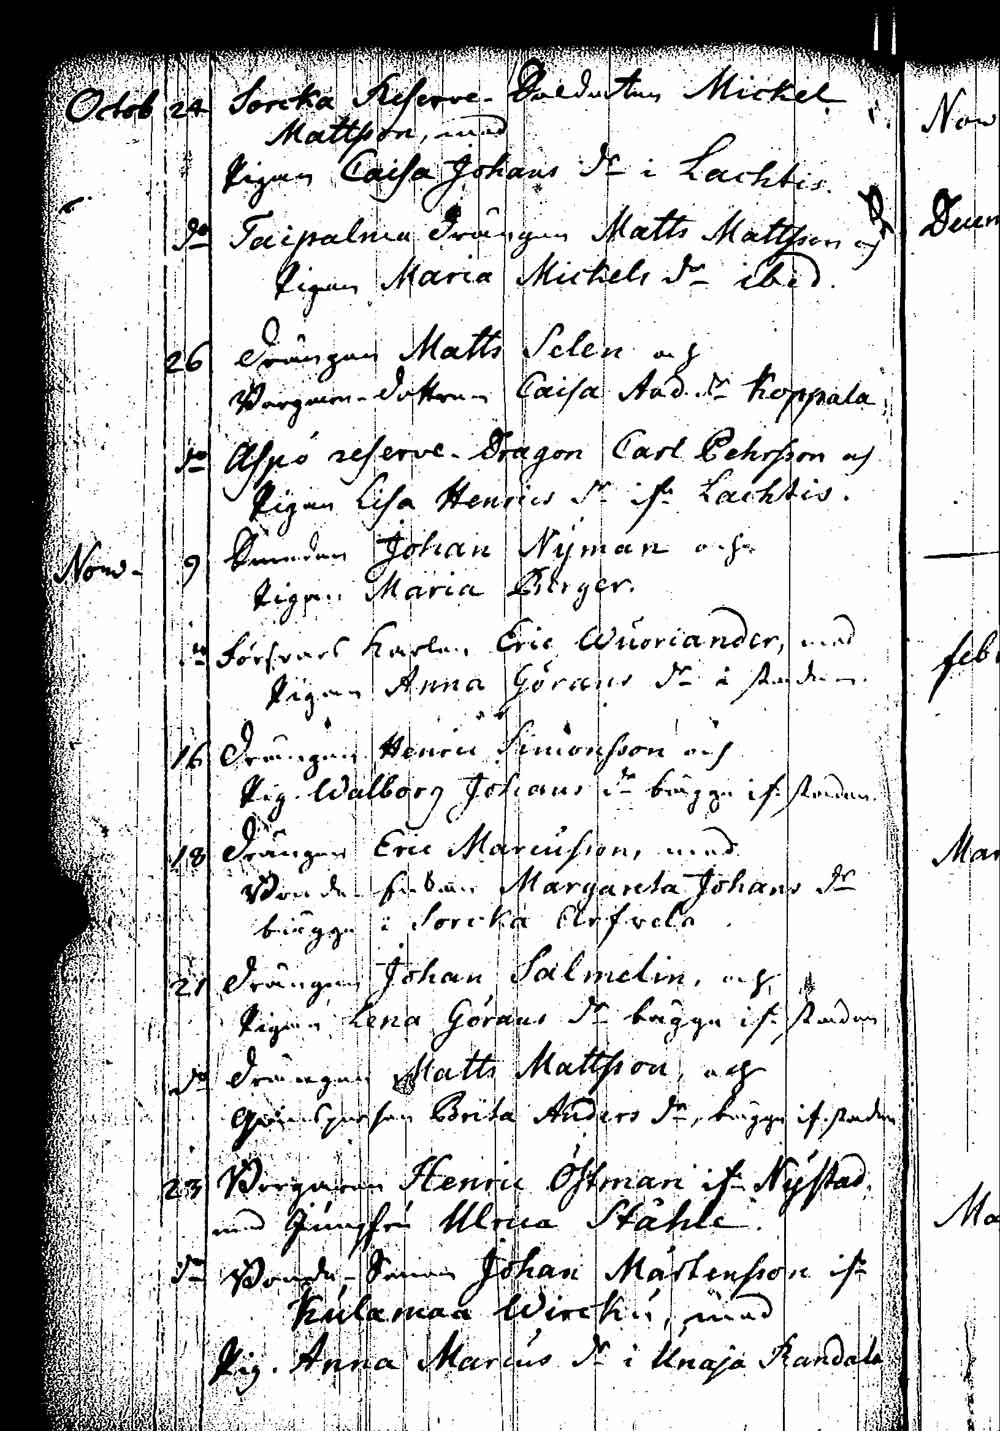 Octob 24 Sorcka Reserve-Soldaten Mickel
Mattsson, med
Pigan Caisa Johans dr i Lachtis.
do Taipalma Drängen Matts Mattsson och
Pigan Maria Mickels dr ibid.
26 Drängen Matts Selen och
Borgare-dottren Caisa And. dr Koppala
do Aspö reserve-Dragon Carl Pehrsson och
Pigan Lisa Henrics dr ifr Lachtis.
Nov. 9 Johan Nyman och
Pigan Maria Berger.
do Försvars Karlen Eric Wuoriander, med
Pigan Anna Görans dr i staden.
16 Drängen Henric Simonsson och
Pig. Walborg Johans dr bägge ifr staden.
18 Drängen Eric Marcusson, med
Bonde Margareta Johans dr
bägge i Sorcka Arfvela
21 Drängen Johan Salmelin, och
Pigan Lena Görans dr bägge ifr staden
do Drängen Matts Mattsson, och
Brita Anders dr, bägge ifr staden
23 Borgaren Henric Östman ifr Nystad.
med Jungfru Ulrica Ståhle.
do Bonde-Sonen Johan Mårtensson ifr
Kulamaa Wircku, med
Pig. Anna Marcus dr i Unaja Randala
Nov
Decem
feb
Mar
Ma